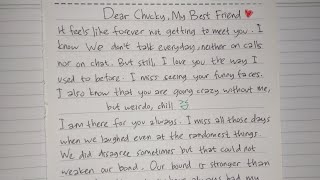 Dear Chucky, My Best Friend ❤
It feels like forever not getting to meet you. I
know We don't talk everyday, neither on calls
nor on chat. But still, I love you the way I
used to before. I miss seeing your funny faces.
I also know that you are going crazy without me,
but weirdo, chill
I am there for you always. I miss all those days
when we laughed even at the randomest things.
We did disagree sometimes but that could not
weaken our bond. Our bound is stronger than
always had my